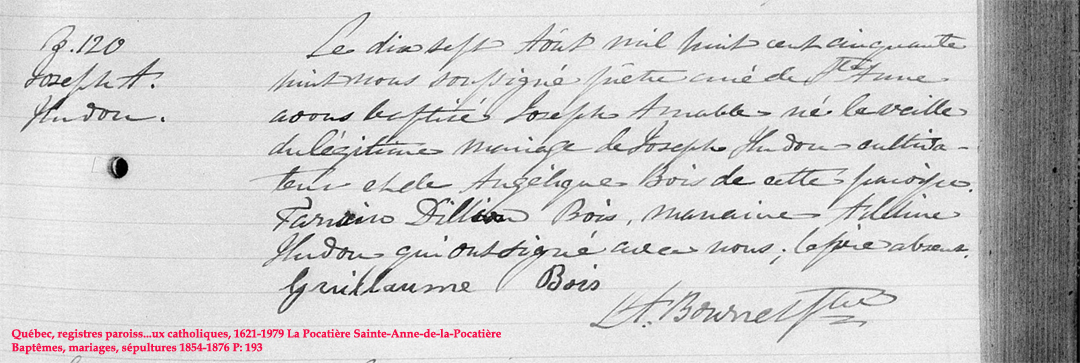 B. 120
Joseph A.
Hudon.
Le dix sept Août mil huit cent cinquante
huit nous soussigné prêtre curé de Ste Anne
avons baptisé Joseph Amable né la veille
du légitime mariage de Joseph Hudon cultiva-
teur et de Angélique Bois de cette paroisse.
Parrain Bois, marraine Adéline
Hudon qui ont signé avec nous; le père absent.
Guillaume Bois
Ptre
Québec, registres paroiss...ux catholiques, 1621-1979 La Pocatière Sainte-Anne-de-la-Pocatière
Baptêmes, mariages, sépultures 1854-1876 P: 193